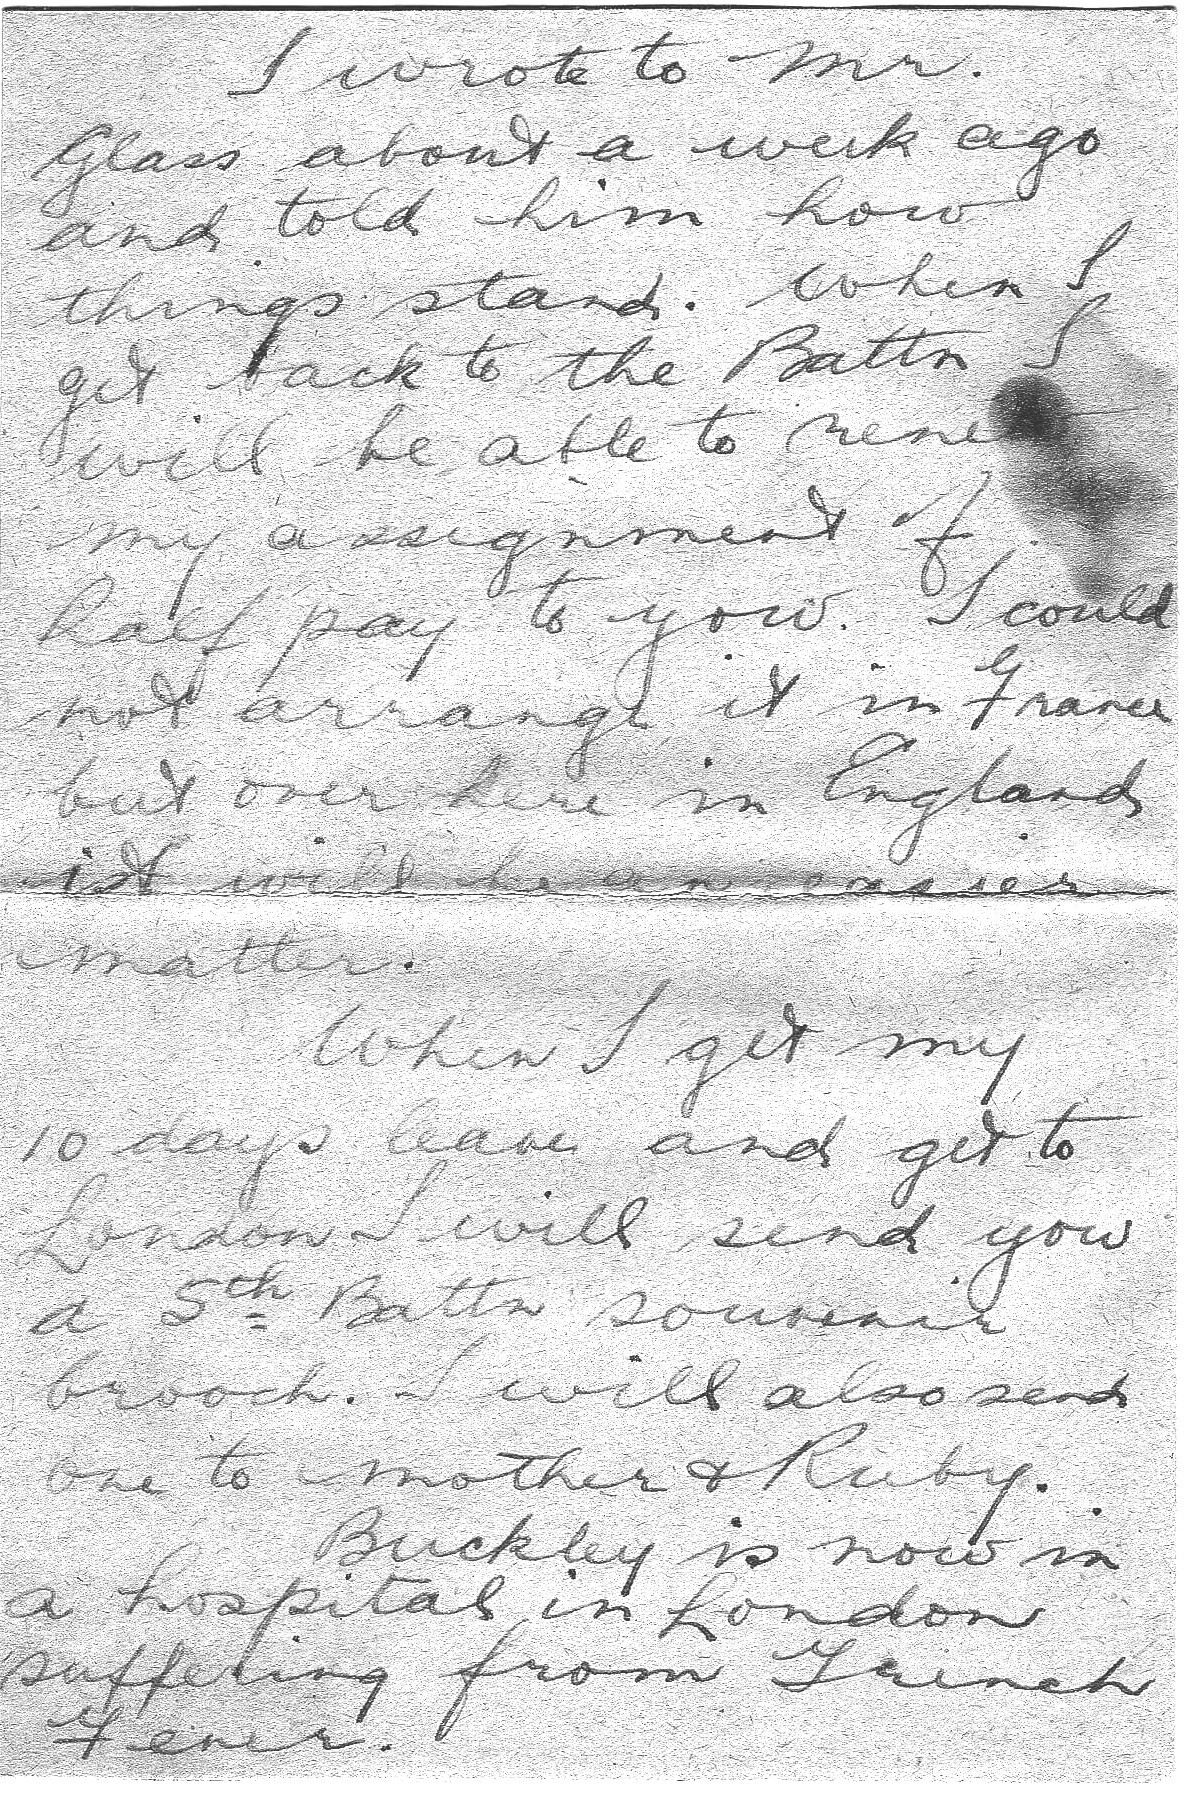 I wrote to Mr.
Glass about a week ago
and told him how
things stand. When I
get back to the Battn I
will be able to rene
my assignment of
half pay to you. I could
not arrange it in France
but over here in England
it will be an easier
matter.
When I get my
10 days leave and get to
London I will send you
a 5th Battn souvenir
brooch. I will also send
one to mother & Ruby.
Buckley is now in
a hospital in London
suffering from Trench
Fever.